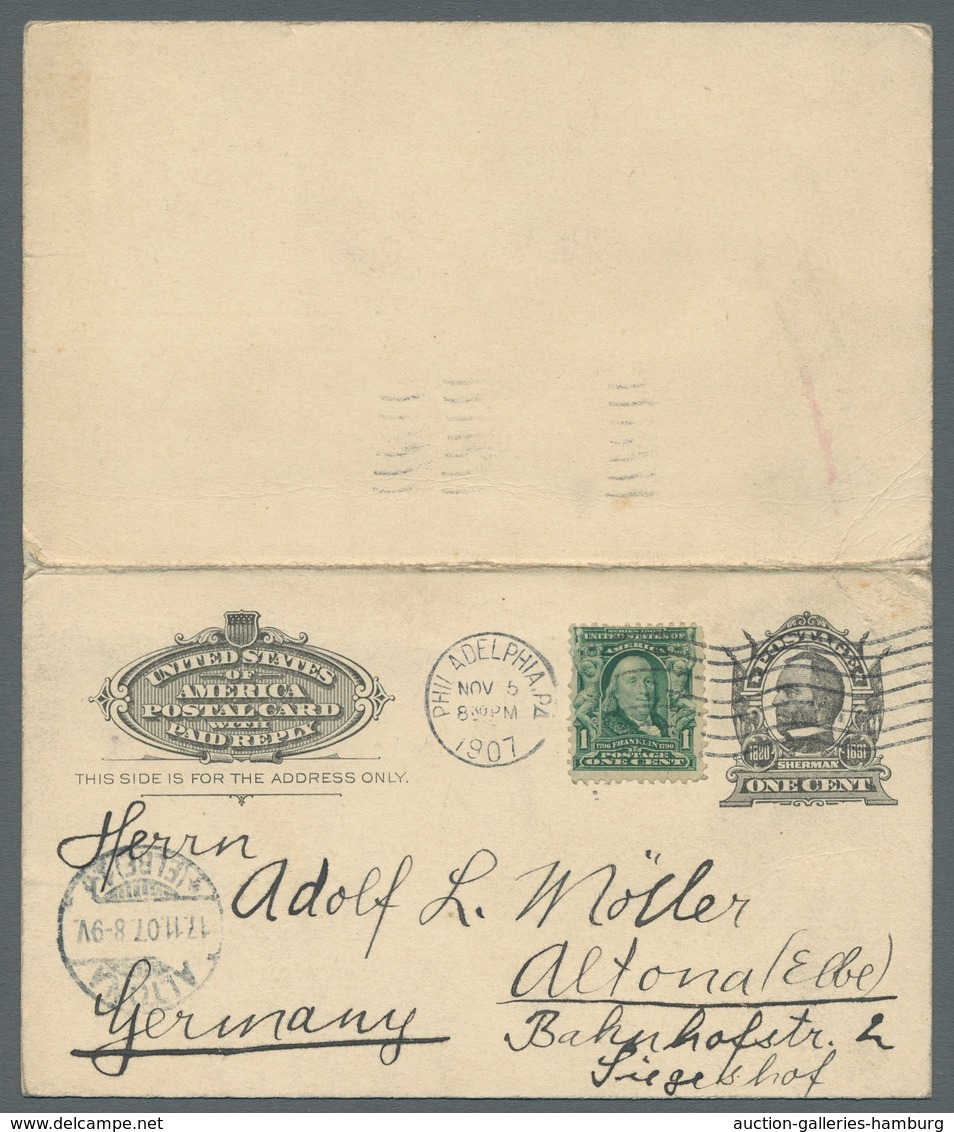 UNITED STATES
OF
AMERICA
POSTAL CARD
WITH
PAID REPLY
THIS SIDE IS FOR THE ADDRESS ONLY.
PHILADELPHIA, PA
NOV 5
8 30 PM
1907
SERIES 1902
UNITED STATES OF
AMERICA
1 1706 FRANKLIN 1790 1
POSTAGE
ONE CENT
U.S. POSTAGE
1820 1891
SHERMAN
ONE CENT
Herrn
Adolf L. Möller
Altona (Elbe)
Bahnhofstr. 2
Siegeshof
Germany
ALTONA
17.11.07. 8-9V.
(ELBE)
auction-galleries-hamburg